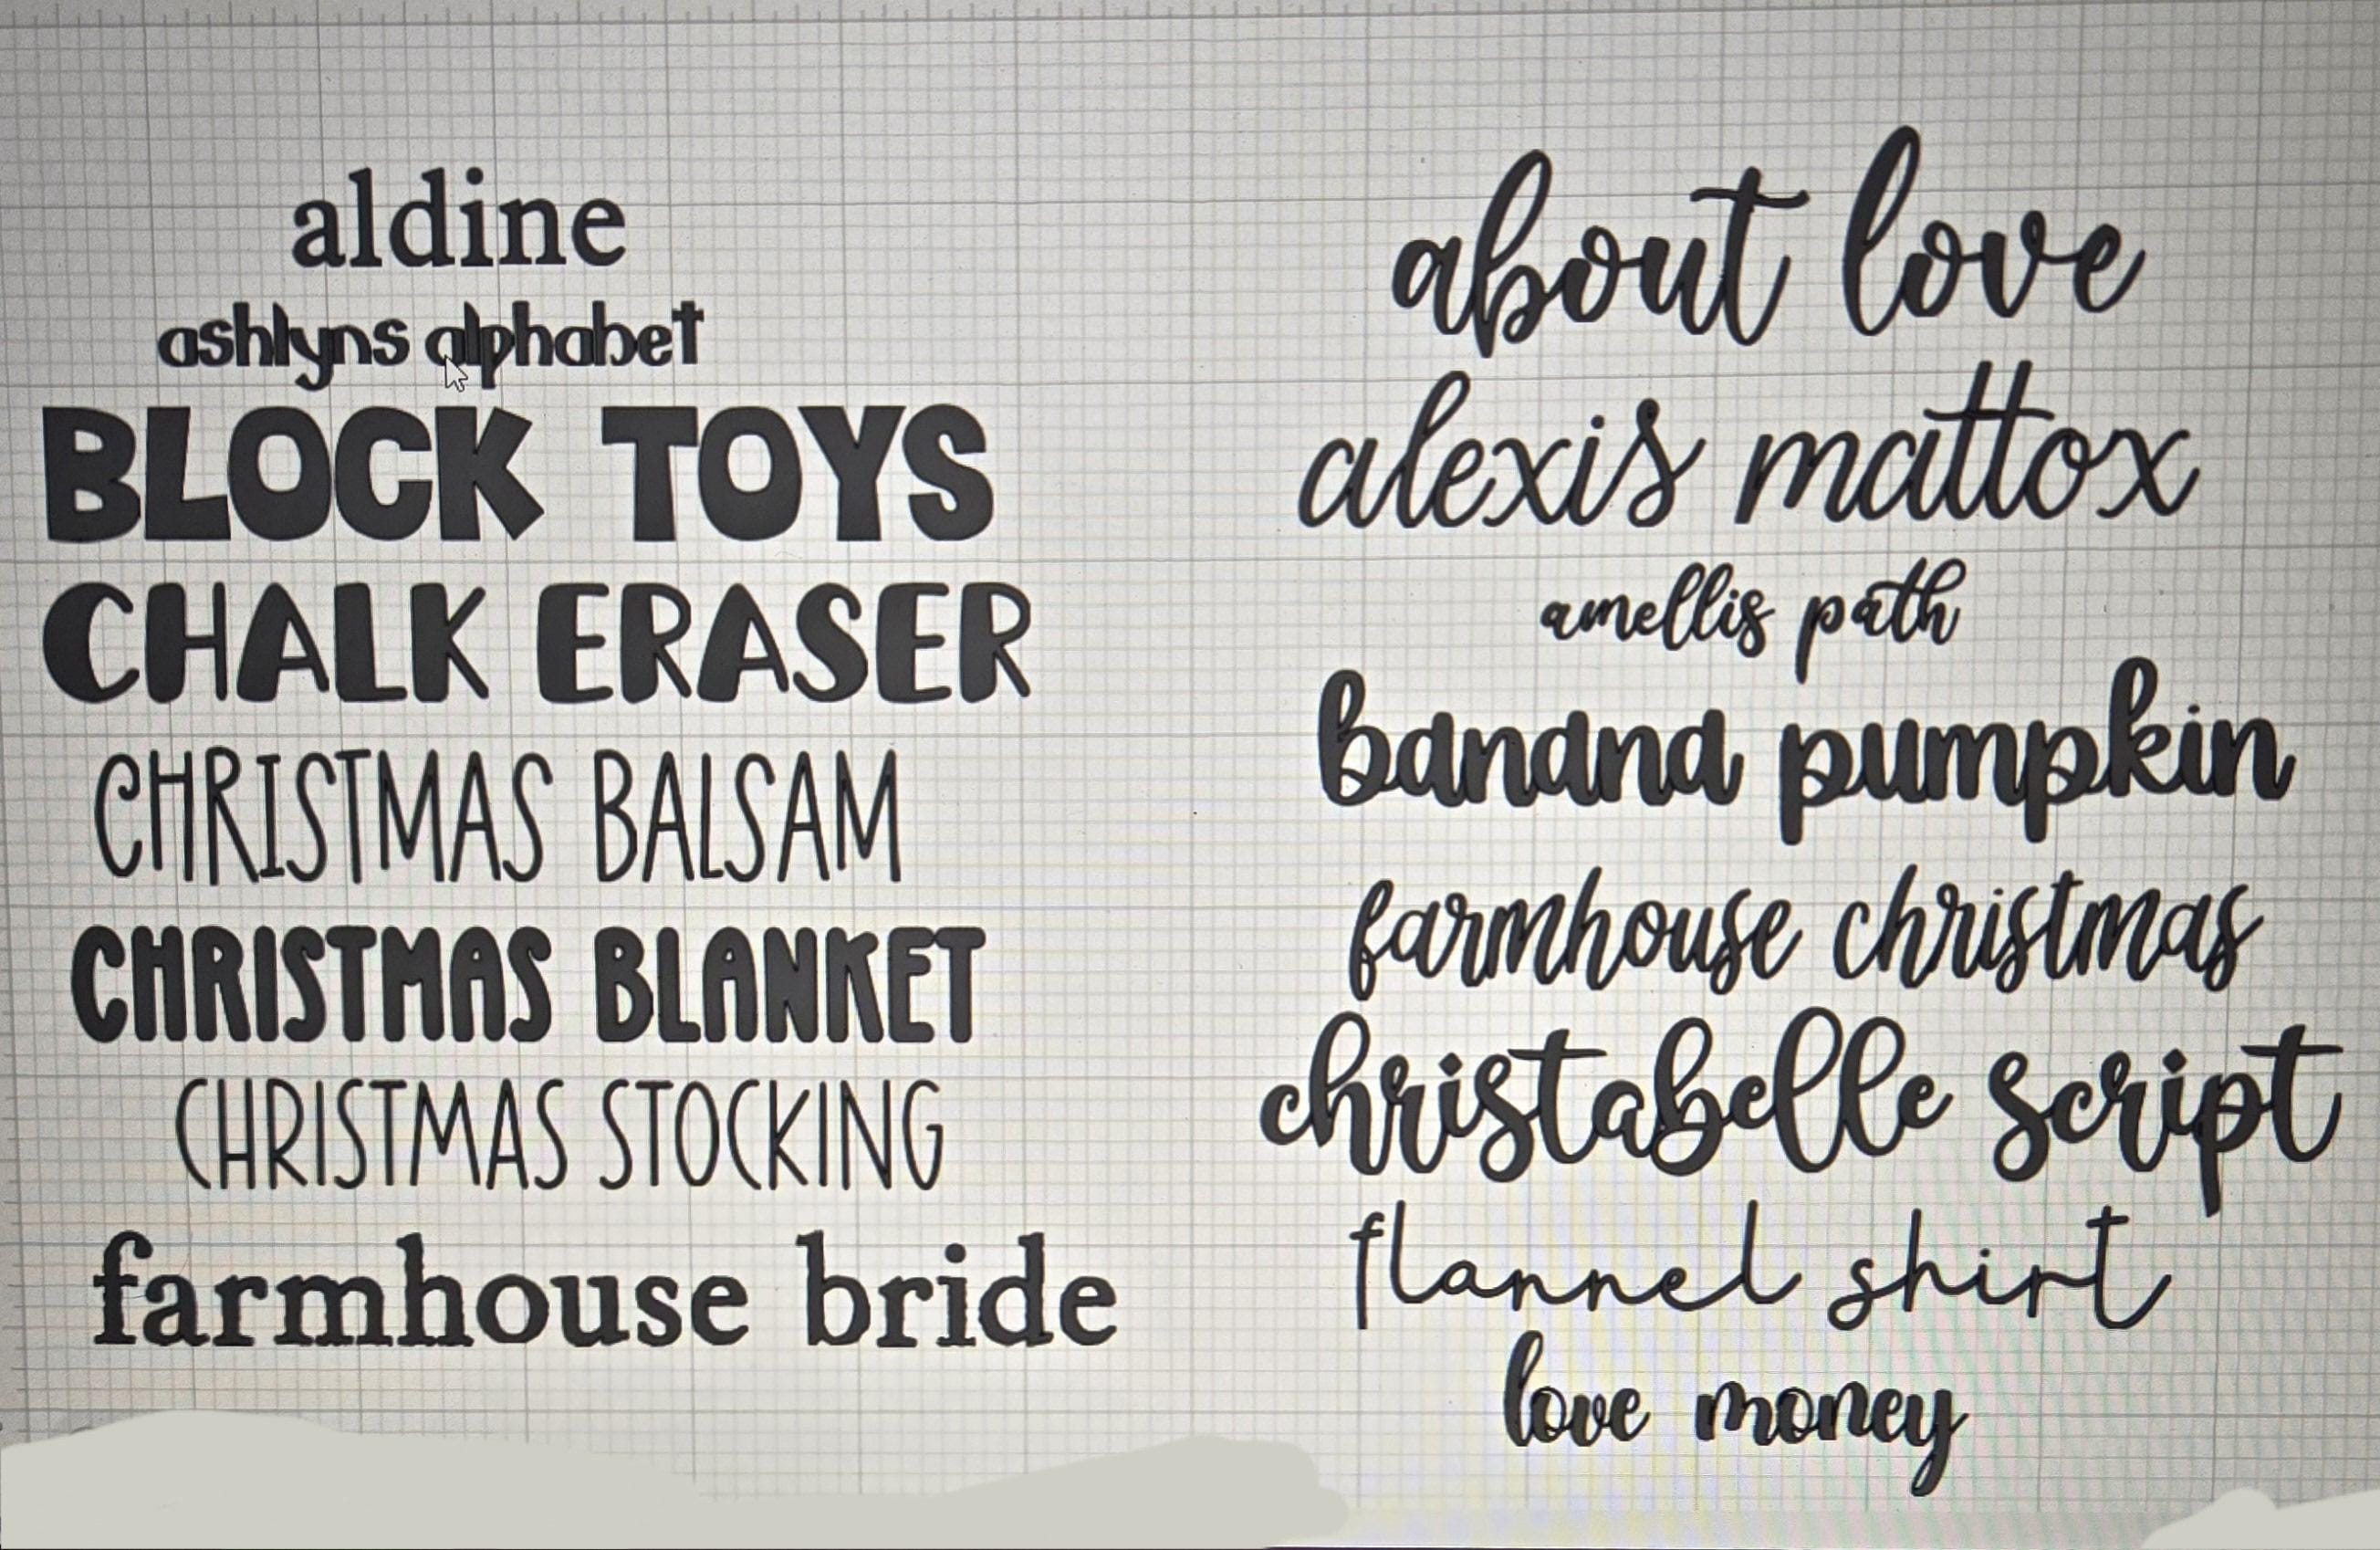 aldine
ashlyns alphabet
BLOCK TOYS
CHALK ERASER
CHRISTMAS BALSAM
CHRISTMAS BLANKET
CHRISTMAS STOCKING
farmhouse bride
about love
alexis mattox
amellis path
banana pumpkin
farmhouse christmas
christabelle script
flannel shirt
love money